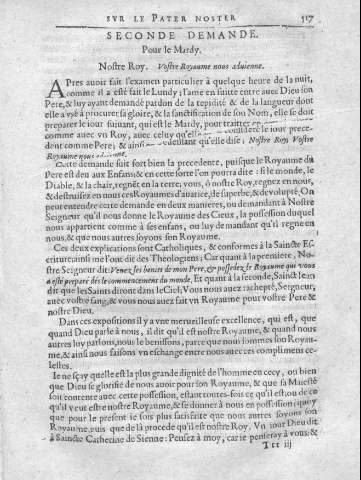 SVR LE PATER NOSTER 517
SECONDE DEMANDE.
Pour le Mardy.
Nostre Roy. Vostre Royaume nous aduienne.
APres auoir fait l'examen particulier à quelque heure de la nuit,
comme il a esté fait le Lundy; l'ame en suitte entre auec Dieu son
Pere, & luy ayant demandé pardon de la tepidité & de la langueur dont
elle a vsé à procurer sa gloire, & la sanctification de son Nom, elle se doit
preparer le iour suiuant, qui est le Mardy, pour traitter
comme auec vn Roy, auec celuy qu'elle a consideré le iour prece-
dent comme Pere; & ainsi entendant qu'elle dise; Nostre Roy Vostre
Royaume nous aduienne.
Cette demande suit fort bien la precedente, puisque le Royaume du
Pere est deu aux Enfans; & en cette sorte l'on pourra dite: si le monde, le
Diable, & la chair, regnẽt en la terre; vous, ô nostre Roy, regnez en nous,
& destruisez en nous ces Royaumes d'auarice, de superbe, & de volupté. On
peut entendre cette demande en deux manieres, ou demandant à Nostre
Seigneur qu'il nous donne le Royaume des Cieux, la possession duquel
nous appartient comme à ses enfans, ou luy demandant qu'il regne en
nous, & que nous autres soyons son Royaume.
Ces deux explications sont Catholiques, & conformes à la Saincte Es-
criture: ainsi me l'ont dit des Theologiens; Car quant à la premiere, No-
stre Seigneur dit: Venez les benits de mon Pere, & possedez le Royaume qui vous
a esté preparé dés le commencement du monde. Et quant à la seconde, Sainct Iean
dit que les Saints diront dans le Ciel, Vous nous auez rachepté, Seigneur,
auec vostre sang, & vous nous auez fait vn Royaume pour vostre Pere &
nostre Dieu.
Dans ces expositions il y a vne merueilleuse excellence, qui est, que
quand Dieu parle à nous, il dit qu'il est nostre Royaume, & quand nous
autres luy parlons, nous le benissons, parce que nous sommes son Royau-
me, & ainsi nous faisons vn eschange entre nous auec ces complimens ce-
lestes.
Ie ne sçay quelle est la plus grande dignité de l'homme en cecy, ou bien
que Dieu se glorifie de nous auoir pour son Royaume, & que sa Maiesté
soit contente auec cette possession, estant toutes-fois ce qu'il est: ou de ce
qu'il veut estre nostre Royaume, & se donner à nous en possession; quoy
que pour le present ie sois plus satisfaite que nous autres soyons son
Royaume, puis que de là procede qu'il est nostre Roy. Vn iour Dieu dit
à Saincte Catherine de Sienne: Pensez à moy, car ie penseray à vous; &
Ttt iij